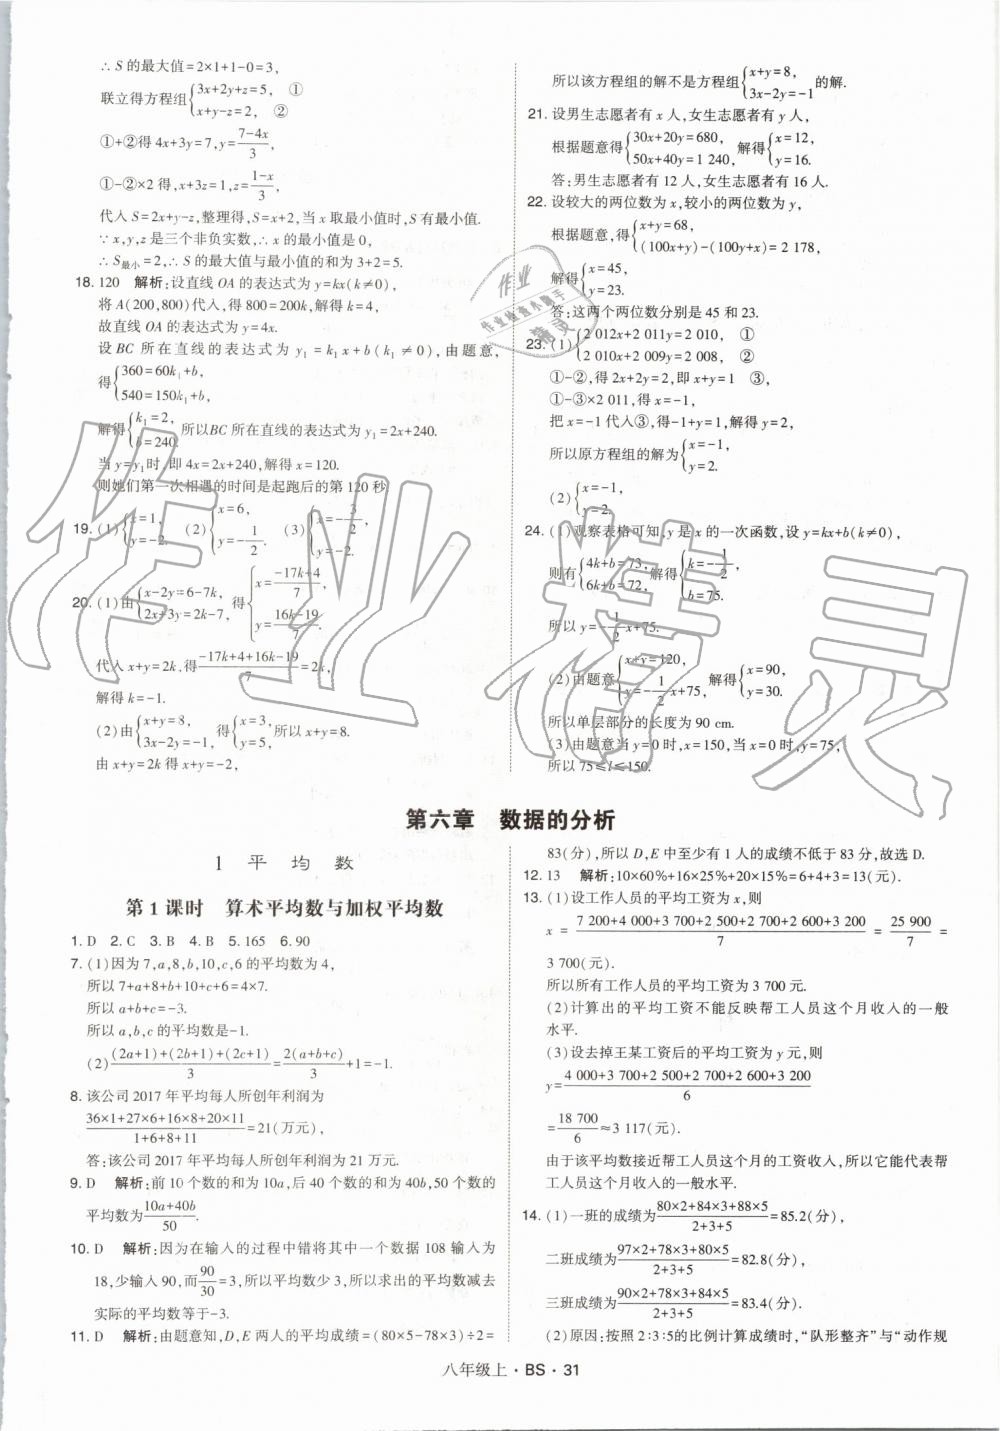 ∴S的最大值=2×1+1-0=3,
联立得方程组{3x+2y+z=5, ①
x+y-z=2; ②
①+②得4x+3y=7,y=(7-4x)/3,
①-②×2得,x+3z=1,z=(1-x)/3,
代入S=2x+y-z,整理得,S=x+2,当x取最小值时,S有最小值.
∵x,y,z是三个非负实数,∴x的最小值是0,
∴S最小=2,∴S的最大值与最小值的和为3+2=5.
18. 120 解析:设直线OA的表达式为y=kx(k≠0),
将A(200,800)代入,得800=200k,解得k=4,
故直线OA的表达式为y=4x.
设BC所在直线的表达式为y₁=k₁x+b(k₁≠0),由题意,
得{360=60k₁+b,
540=150k₁+b,
解得{k₁=2,
b=240.
所以BC所在直线的表达式为y₁=2x+240.
当y=y₁时,即4x=2x+240,解得x=120.
则她们第一次相遇的时间是起跑后的第120秒
19. (1){x=1,
y=-2.
(2){x=6,
y=-1/2.
(3){x=-3/2,
y=-2.
20. (1)由{x-2y=6-7k,
2x+3y=2k-7,
得{x=(-17k+4)/7,
y=(16k-19)/7.
代入x+y=2k,得(-17k+4+16k-19)/7=2k,
解得k=-1.
(2)由{x+y=8,
3x-2y=-1,
得{x=3,
y=5,
所以x+y=8.
由x+y=2k得x+y=-2,
所以该方程组的解不是方程组{x+y=8,
3x-2y=-1
的解.
21. 设男生志愿者有x人,女生志愿者有y人,
根据题意得{30x+20y=680,
50x+40y=1 240,
解得{x=12,
y=16.
答:男生志愿者有12人,女生志愿者有16人.
22. 设较大的两位数为x,较小的两位数为y,
根据题意,得{x+y=68,
(100x+y)-(100y+x)=2 178,
解得{x=45,
y=23.
答:这两个两位数分别是45和23.
23. (1){2 012x+2 011y=2 010, ①
2 010x+2 009y=2 008, ②
①-②,得2x+2y=2,即x+y=1 ③,
①-③×2 011,得x=-1,
把x=-1代入③,得-1+y=1,解得y=2,
所以原方程组的解为{x=-1,
y=2.
(2){x=-1,
y=2.
24. (1)观察表格可知,y是x的一次函数,设y=kx+b(k≠0),
则有{4k+b=73,
6k+b=72,
解得{k=-1/2,
b=75.
所以y=-1/2x+75.
(2)由题意{x+y=120,
y=-1/2x+75,
解得{x=90,
y=30.
所以单层部分的长度为90 cm.
(3)由题意当y=0时,x=150,当x=0时,y=75,
所以75≤l≤150.
第六章 数据的分析
1 平均数
第1课时 算术平均数与加权平均数
1. D 2. C 3. B 4. B 5. 165 6. 90
7. (1)因为7,a,8,b,10,c,6的平均数为4,
所以7+a+8+b+10+c+6=4×7.
所以a+b+c=-3.
所以a,b,c的平均数是-1.
(2)((2a+1)+(2b+1)+(2c+1))/3=2(a+b+c)/3+1=-1.
8. 该公司2017年平均每人所创年利润为
(36×1+27×6+16×8+20×11)/(1+6+8+11)=21(万元),
答:该公司2017年平均每人所创年利润为21万元.
9. D 解析:前10个数的和为10a,后40个数的和为40b,50个数的
平均数为(10a+40b)/50.
10. D 解析:因为在输入的过程中错将其中一个数据108输入为
18,少输入90,而90/30=3,所以平均数少3,所以求出的平均数减去
实际的平均数等于-3.
11. D 解析:由题意知,D,E两人的平均成绩=(80×5-78×3)÷2=
83(分),所以D,E中至少有1人的成绩不低于83分,故选D.
12. 13 解析:10×60%+16×25%+20×15%=6+4+3=13(元).
13. (1)设工作人员的平均工资为x,则
x=(7 200+4 000+3 700+2 500+2 700+2 600+3 200)/7=25 900/7=
3 700(元).
所以所有工作人员的平均工资为3 700元.
(2)计算出的平均工资不能反映帮工人员这个月收入的一般
水平.
(3)设去掉王某工资后的平均工资为y元,则
y=(4 000+3 700+2 500+2 700+2 600+3 200)/6
=18 700/6≈3 117(元).
由于该平均数接近帮工人员这个月的工资收入,所以它能代表帮
工人员这个月收入的一般水平.
14. (1)一班的成绩为(80×2+84×3+88×5)/(2+3+5)=85.2(分),
二班成绩为(97×2+78×3+80×5)/(2+3+5)=82.8(分),
三班成绩为(90×2+78×3+84×5)/(2+3+5)=83.4(分).
(2)原因:按照2∶3∶5的比例计算成绩时,“队形整齐”与“动作规
八年级上·BS·31
作业精灵
作业
作业检查小助手
精灵